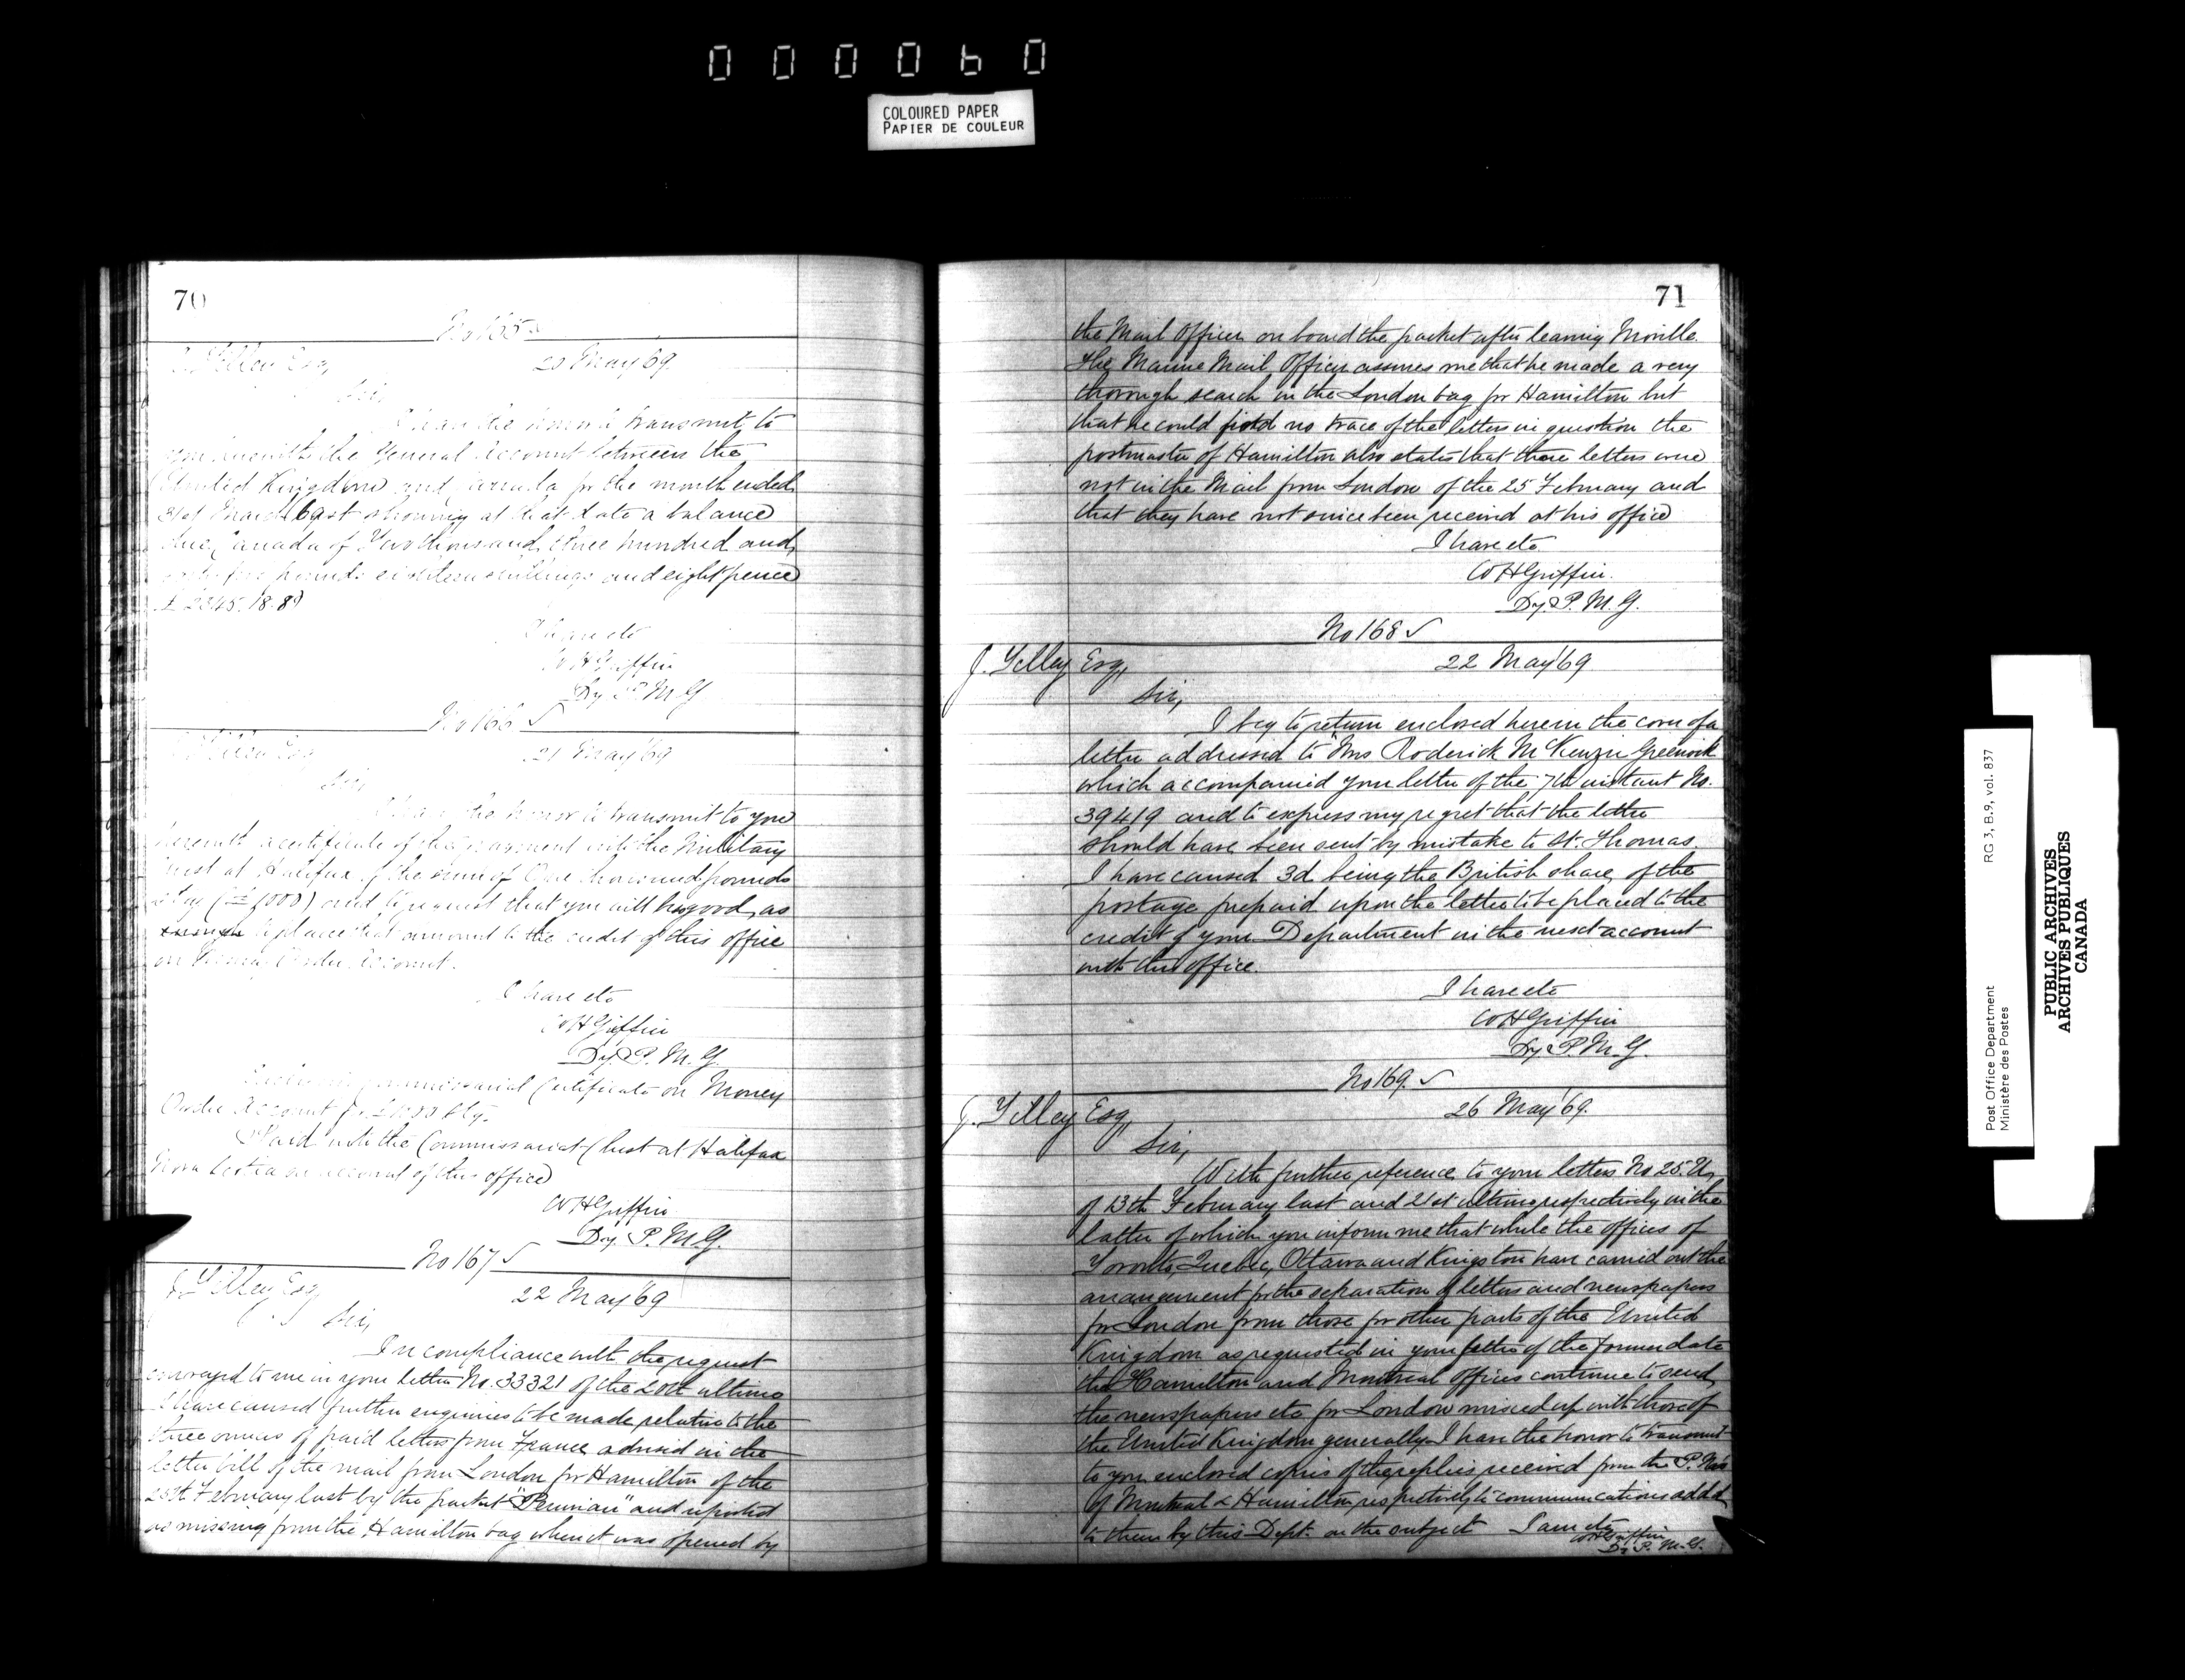 000060
COLOURED PAPER
PAPIER DE COULEUR
70
No 165
J. Tilley Esq,
20 May '69
Sir,
I have the honor to transmit to
you herewith the General Account between the
United Kingdom and Canada for the month ended
31st March 69 showing at that date a balance
due Canada of Two thousand three hundred and
forty five pounds eighteen shillings and eight pence
£2345.18.8
I have etc
W H Griffin
Dy. P. M. G
No 166 ✓
J. Tilley Esq
21 May '69
Sir,
I have the honor to transmit to you
herewith a certificate of the payment into the Military
Chest at Halifax of the sum of One thousand pounds
stg (£1000) and to request that you will be so good as
to place that amount to the credit of this office
on Money Order Account.
I have etc
W H Griffin
Dy. P. M. G.
Commissariat Certificate on Money
Order Account for £1000 Stg.
Paid into the Commissariat Chest at Halifax
Nova Scotia on account of this office
W H Griffin
Dy. P. M. G.
No 167 ✓
J. Tilley Esq
22 May '69
Sir,
In compliance with the request
conveyed to me in your letter No. 33321 of the 20th ultimo
I have caused further enquiries to be made relative to the
three ounces of paid letters from France advised in the
letter bill of the mail from London for Hamilton of the
25th February last by the packet "Peruvian" and reported
as missing from the Hamilton bag when it was opened by
71
the Mail Officer on board the packet after leaving Moville.
The Marine Mail Officer assures me that he made a very
thorough search in the London bag for Hamilton but
that he could find no trace of the letters in question the
postmaster of Hamilton also states that these letters were
not in the Mail from London of the 25 February and
that they have not since been received at his office
I have etc
W H Griffin.
Dy. P. M. G.
No 168 ✓
J. Tilley Esq,
22 May '69
Sir,
I beg to return enclosed herein the cover of a
letter addressed to "Mrs Roderick McKenzie Greenock
which accompanied your letter of the 7th instant No.
39419 and to express my regret that the letter
should have been sent by mistake to St. Thomas.
I have caused 3d. being the British share of the
postage prepaid upon the letter to be placed to the
credit of your Department in the next account
with this office.
I have etc
W H Griffin
Dy. P. M. G.
No 169. ✓
J. Tilley Esq,
26 May '69.
Sir,
With further reference to your letters No 25. U,
of 13th February last and 21st ultimo respectively in the
latter of which you inform me that while the offices of
Toronto, Quebec, Ottawa and Kingston have carried out the
arrangement for the separation of letters and newspapers
for London from those for other parts of the United
Kingdom as requested in your letter of the former date
the Hamilton and Montreal offices continue to send
the newspapers etc for London mixed up with those of
the United Kingdom generally I have the honor to transmit
to you enclosed copies of the replies received from the P. Mrs
of Montreal & Hamilton respectively to communications addd
to them by this Dept. on the subject I am etc
W H Griffin
Dy. P. M. G.
Post Office Department
Ministère des Postes
RG 3, B.9, vol. 837
PUBLIC ARCHIVES
ARCHIVES PUBLIQUES
CANADA